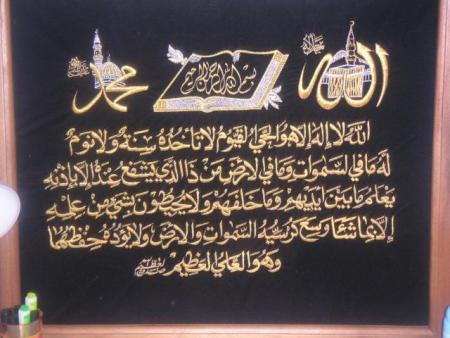 الله جل جلاله
بسم الله الرحمن الرحيم
محمد
الله لا إله إلا هو الحي القيوم لا تأخذه سنة ولا نوم
له ما في السموات وما في الارض من ذا الذي يشفع عنده إلا بإذنه
يعلم ما بين ايديهم وما خلفهم ولا يحيطون بشيء من علمه
إلا بما شاء وسع كرسيه السموات والارض ولا يؤده حفظهما
وهو العلي العظيم